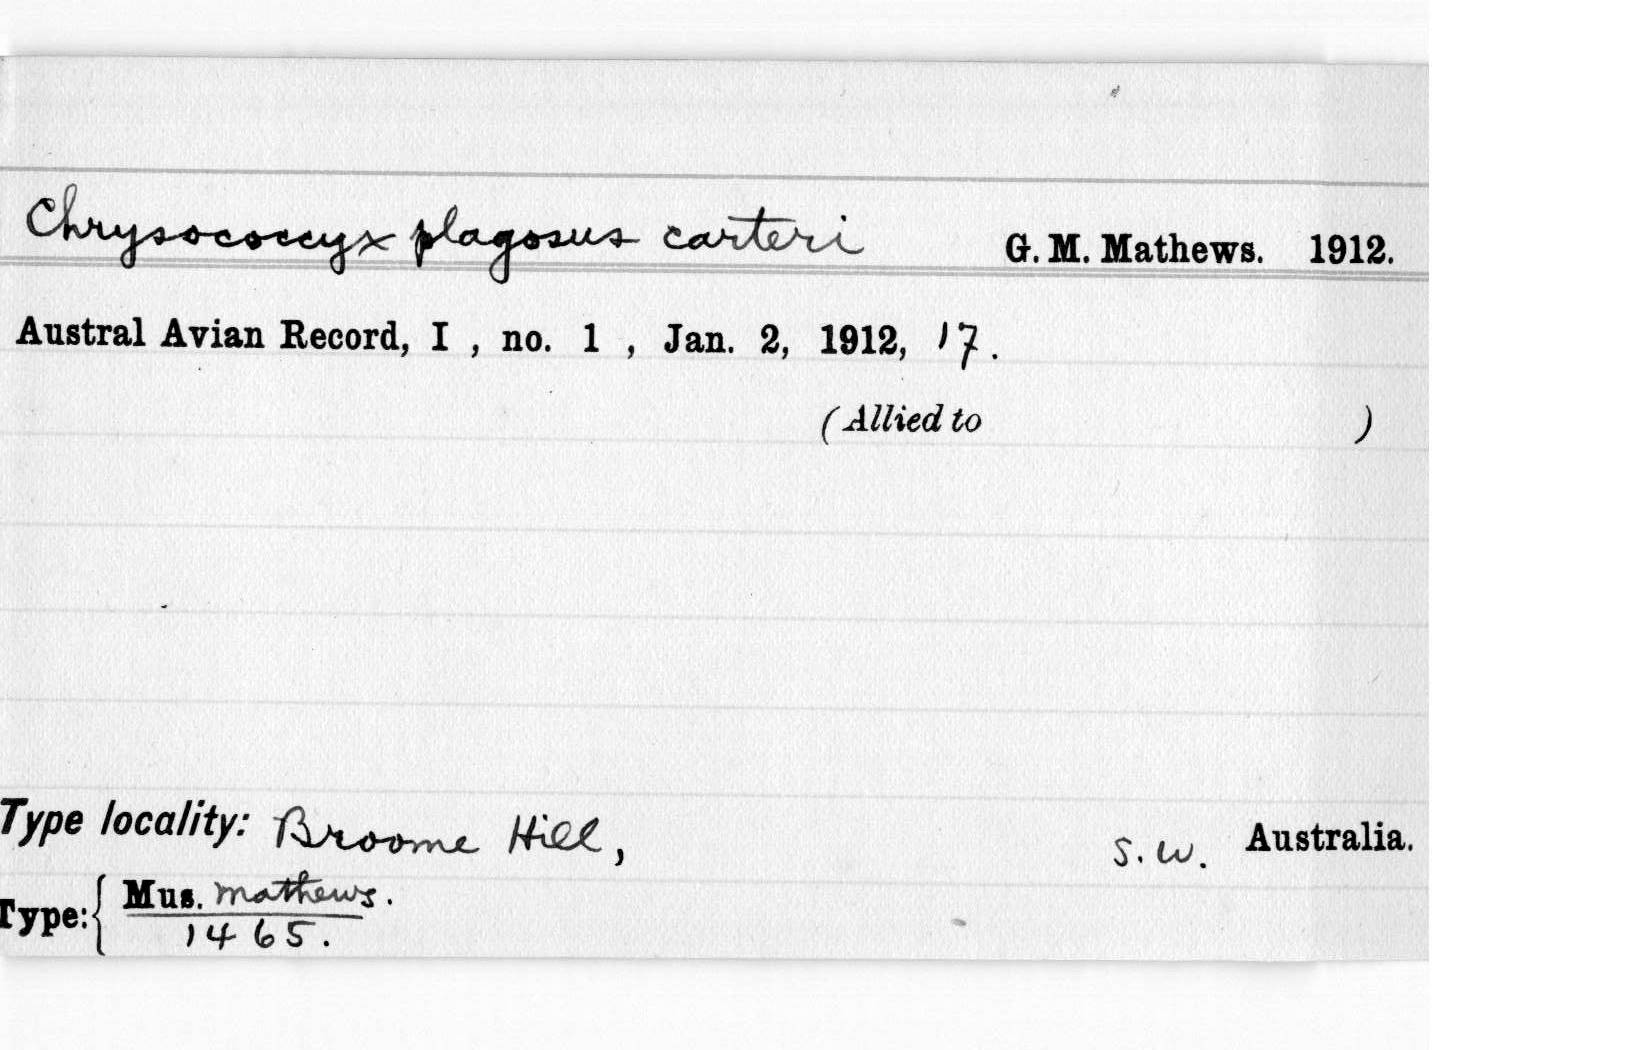 Chrysococcyx plagosus carteri G. M. Mathews. 1912.
Austral Avian Record, I , no. 1 , Jan. 2, 1912, 17.
(Allied to )
Type locality: Broome Hill, S. W. Australia.
Type: { Mus. Mathews.
1465.